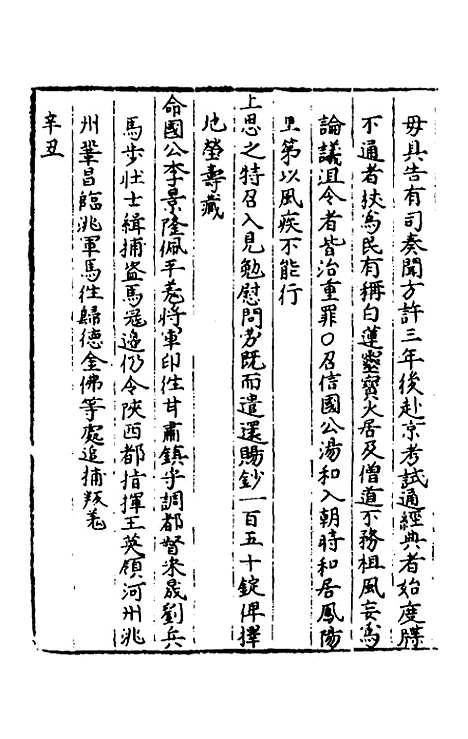 毋具告有司奏聞方許三年後赴京考試通經典者始度牒
不通者扶為民有稱白蓮靈寶火居及僧道不務祖風妄為
論議沮令者皆治重罪○召信國公湯和入朝時和居鳳陽
里第以風疾不能行
上思之特召入見勉慰問勞既而遣還賜鈔一百五十錠俾擇
地營壽藏
命國公李景隆佩平羌將軍印往甘肅鎮守調都督宋晟劉兵
馬步壯士緝捕盜馬寇邊仍令陝西都指揮王英領河州洮
州鞏昌臨洮軍馬往歸德金佛等處追捕叛羌
辛丑